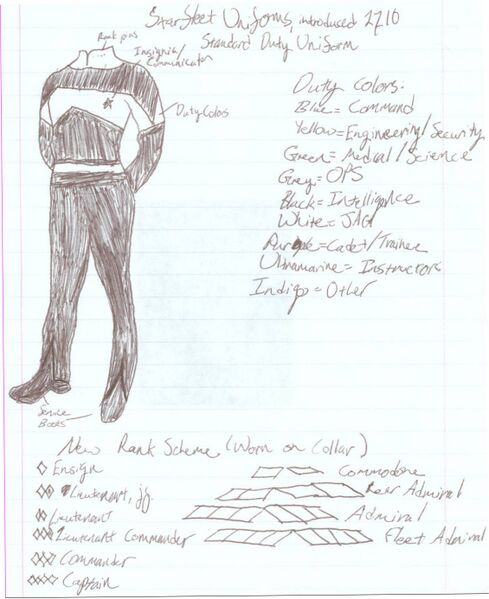 Starfleet Uniforms, introduced 2710
Standard Duty Uniform
Rank pins
Insignia/
Communicator
Duty Colors
Duty colors:
Blue = Command
Yellow = Engineering/Security
Green = Medical/Science
Grey = OPS
Black = Intelligence
White = JAG
Purple = Cadet/Trainee
Ultramarine = Instructors
Indigo = Other
Service
Boots
New Rank Scheme (Worn on Collar)
Ensign
Lieutenant, jg.
Lieutenant
Lieutenant Commander
Commander
Captain
Commodore
Rear Admiral
Admiral
Fleet Admiral